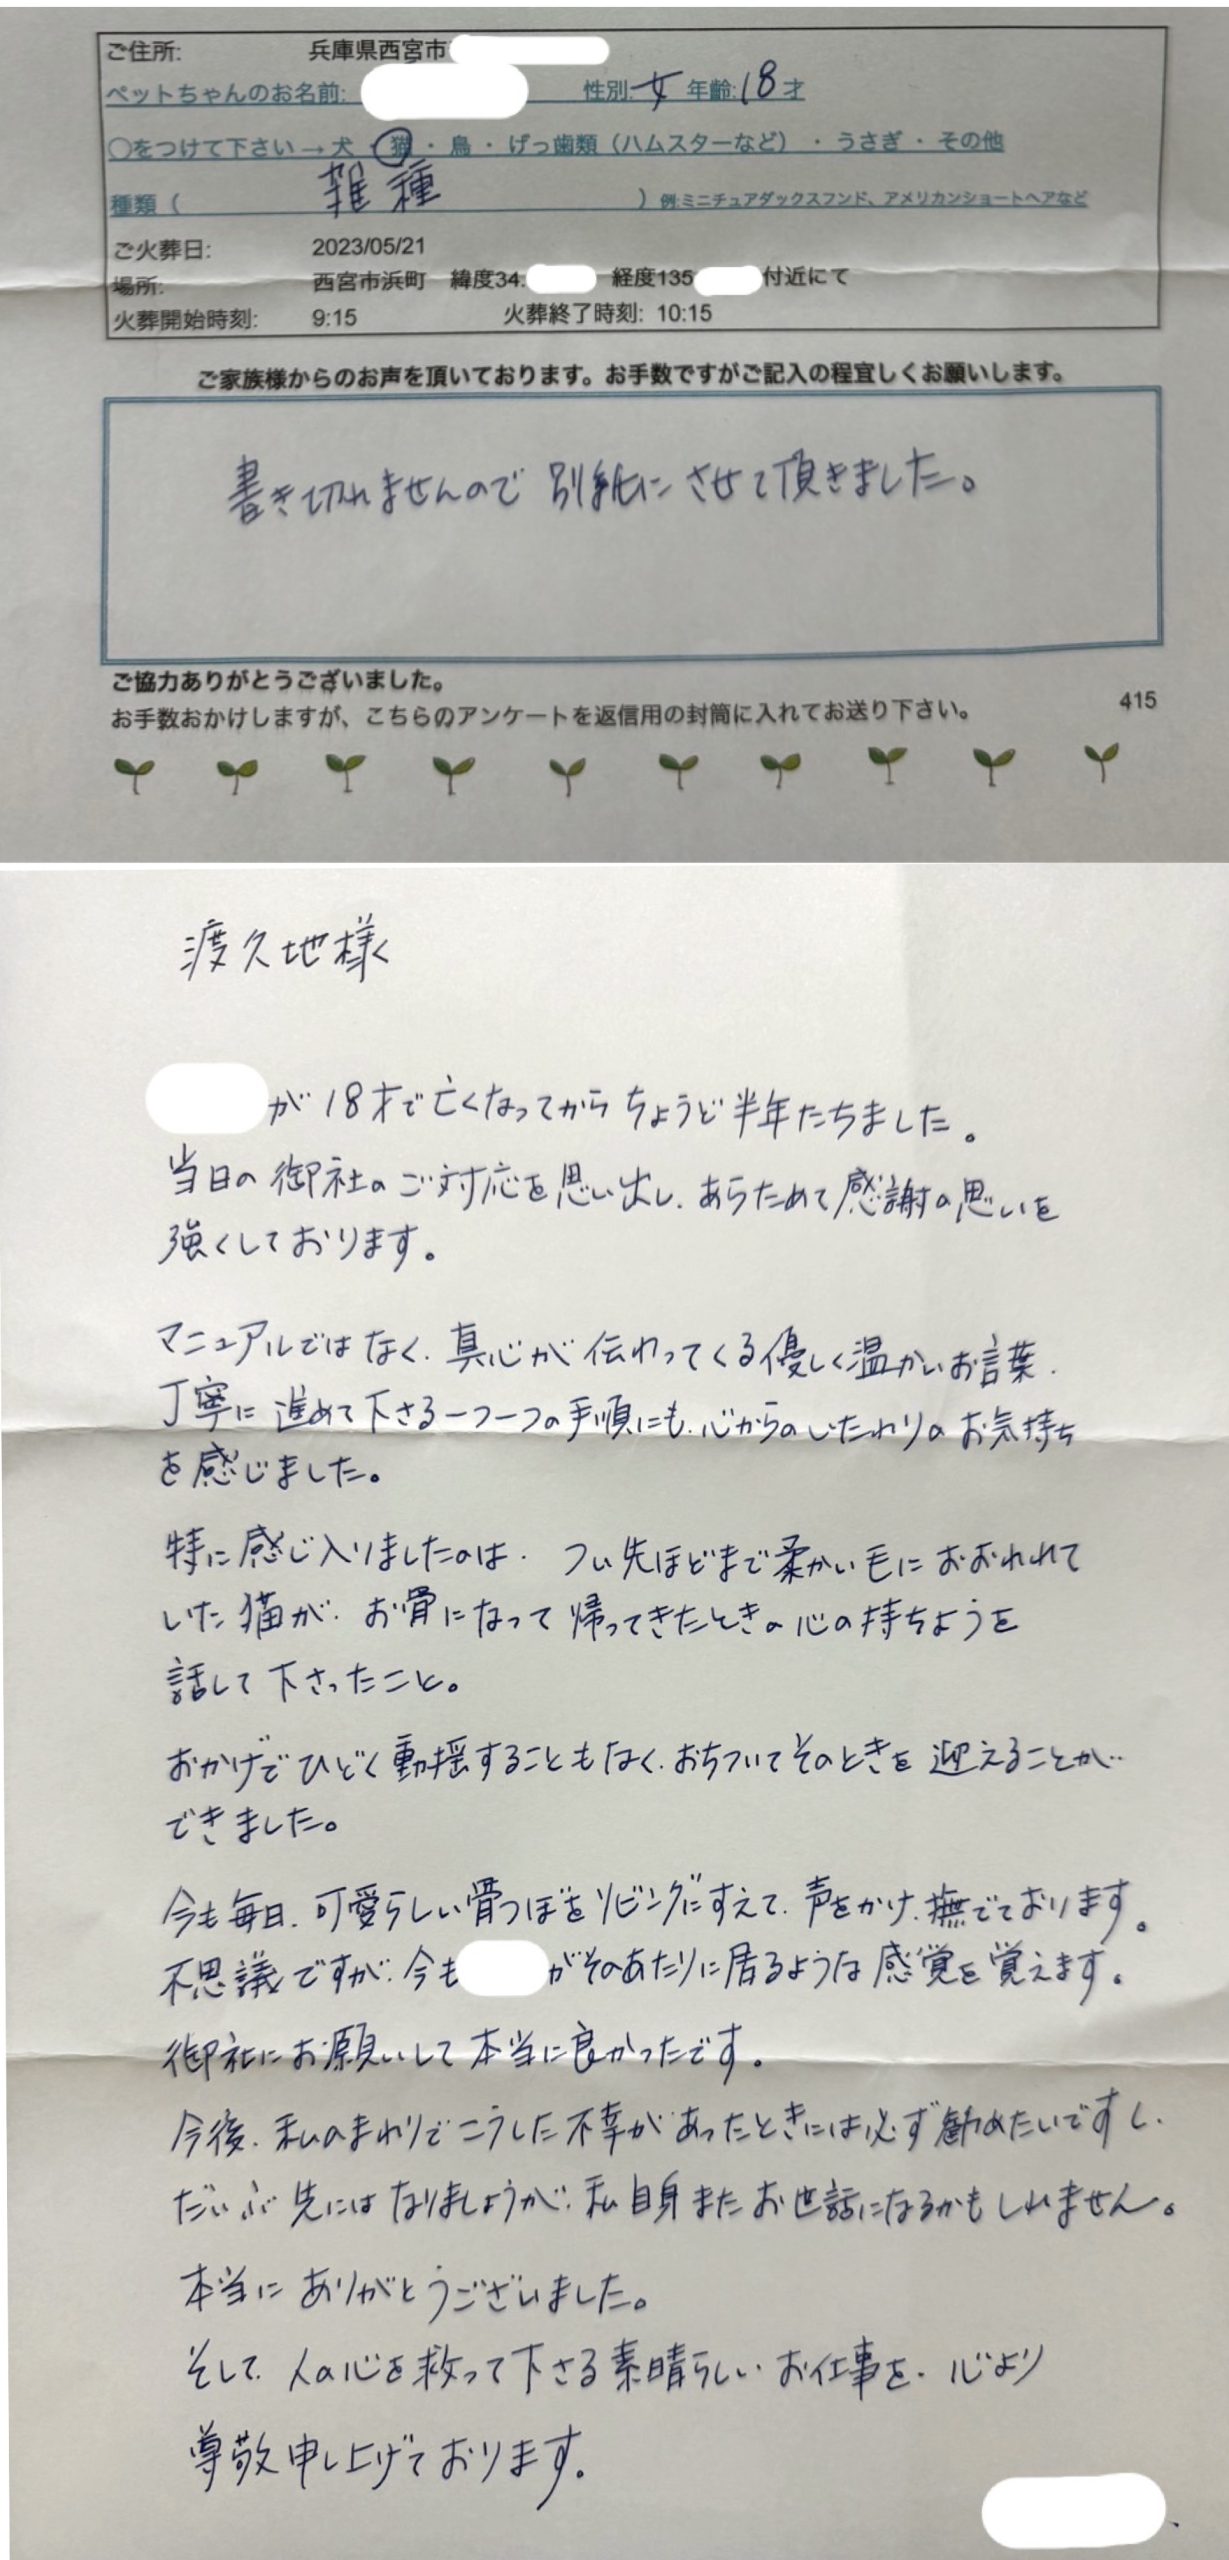 ご住所: 兵庫県西宮市
ペットちゃんのお名前: 性別: 女 年齢: 18才
○をつけて下さい→犬・猫・鳥・げっ歯類（ハムスターなど）・うさぎ・その他
種類（ 雑種 ）例:ミニチュアダックスフンド、アメリカンショートヘアなど
ご火葬日: 2023/05/21
場所: 西宮市浜町 緯度34. 経度135 付近にて
火葬開始時刻: 9:15 火葬終了時刻: 10:15
ご家族様からのお声を頂いております。お手数ですがご記入の程宜しくお願いします。
書き切れませんので別紙にさせて頂きました。
ご協力ありがとうございました。
お手数おかけしますが、こちらのアンケートを返信用の封筒に入れてお送り下さい。
415
渡久地様
が18才で亡くなってからちょうど半年たちました。
当日の御社のご対応を思い出し、あらためて感謝の思いを
強くしております。
マニュアルではなく、真心が伝わってくる優しく温かいお言葉、
丁寧に進めて下さる一つ一つの手順にも、心からのいたわりのお気持ち
を感じました。
特に感じ入りましたのは、つい先ほどまで柔かい毛におおわれて
いた猫が、お骨になって帰ってきたときの心の持ちようを
話して下さったこと。
おかげでひどく動揺することもなく、おちついてそのときを迎えることが
できました。
今も毎日、可愛らしい骨つぼをリビングにすえて、声をかけ、撫でております。
不思議ですが、今も がそのあたりに居るような感覚を覚えます。
御社にお願いして本当に良かったです。
今後、私のまわりでこうした不幸があったときには必ず勧めたいですし、
だいぶ先にはなりましょうが、私自身またお世話になるかもしれません。
本当にありがとうございました。
そして、人の心を救って下さる素晴らしいお仕事を、心より
尊敬申し上げております。